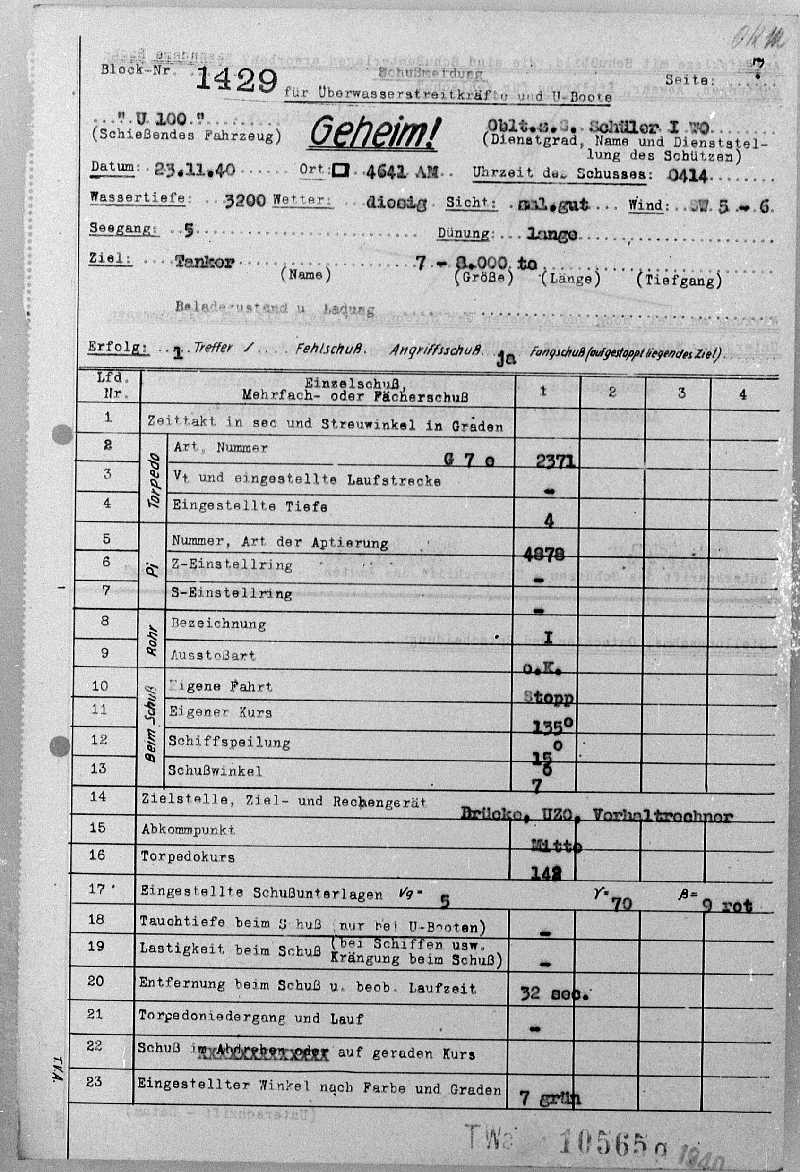 Block-Nr. 1429 Schußmeldung Seite:
für Überwasserstreitkräfte und U-Boote
"U 100." Geheim! Oblt.s.S. Schüler I WO
(Schießendes Fahrzeug) (Dienstgrad, Name und Dienststel-
lung des Schützen)
Datum: 23.11.40 Ort: 4641 AM Uhrzeit des Schusses: 0414
Wassertiefe: 3200 Wetter: diesig Sicht: mal.gut Wind: SW 5 - 6.
Seegang: 5 Dünung: lange
Ziel: Tanker 7 - 8.000 to
(Name) (Größe) (Länge) (Tiefgang)
Beladezustand u Ladung
Erfolg: 1 Treffer / Fehlschuß. Angriffsschuß ja Fangschuß (aufgestoppt liegendes Ziel).
Lfd. Nr. Einzelschuß, Mehrfach- oder Fächerschuß 1 2 3 4
1 Zeittakt in sec und Streuwinkel in Graden
Torpedo
2 Art, Nummer G 7 e 2371
3 Vt und eingestellte Laufstrecke -
4 Eingestellte Tiefe 4
Pi
5 Nummer, Art der Aptierung 4878
6 Z-Einstellring -
7 S-Einstellring -
Rohr
8 Bezeichnung I
9 Ausstoßart o.K.
Beim Schuß
10 Eigene Fahrt Stopp
11 Eigener Kurs 135°
12 Schiffspeilung 15°
13 Schußwinkel 7°
14 Zielstelle, Ziel- und Rechengerät Brücke, UZO, Vorhaltrechner
15 Abkommpunkt Mitte
16 Torpedokurs 142
17 Eingestellte Schußunterlagen Vg= 5 γ= 70 β= 9 rot
18 Tauchtiefe beim Schuß (nur bei U-Booten) -
19 Lastigkeit beim Schuß (bei Schiffen usw. Krängung beim Schuß) -
20 Entfernung beim Schuß u. beob. Laufzeit 32 sec.
21 Torpedoniedergang und Lauf -
22 Schuß im Abdrehen oder auf geraden Kurs
23 Eingestellter Winkel nach Farbe und Graden 7 grün
TKA.
10565
1940